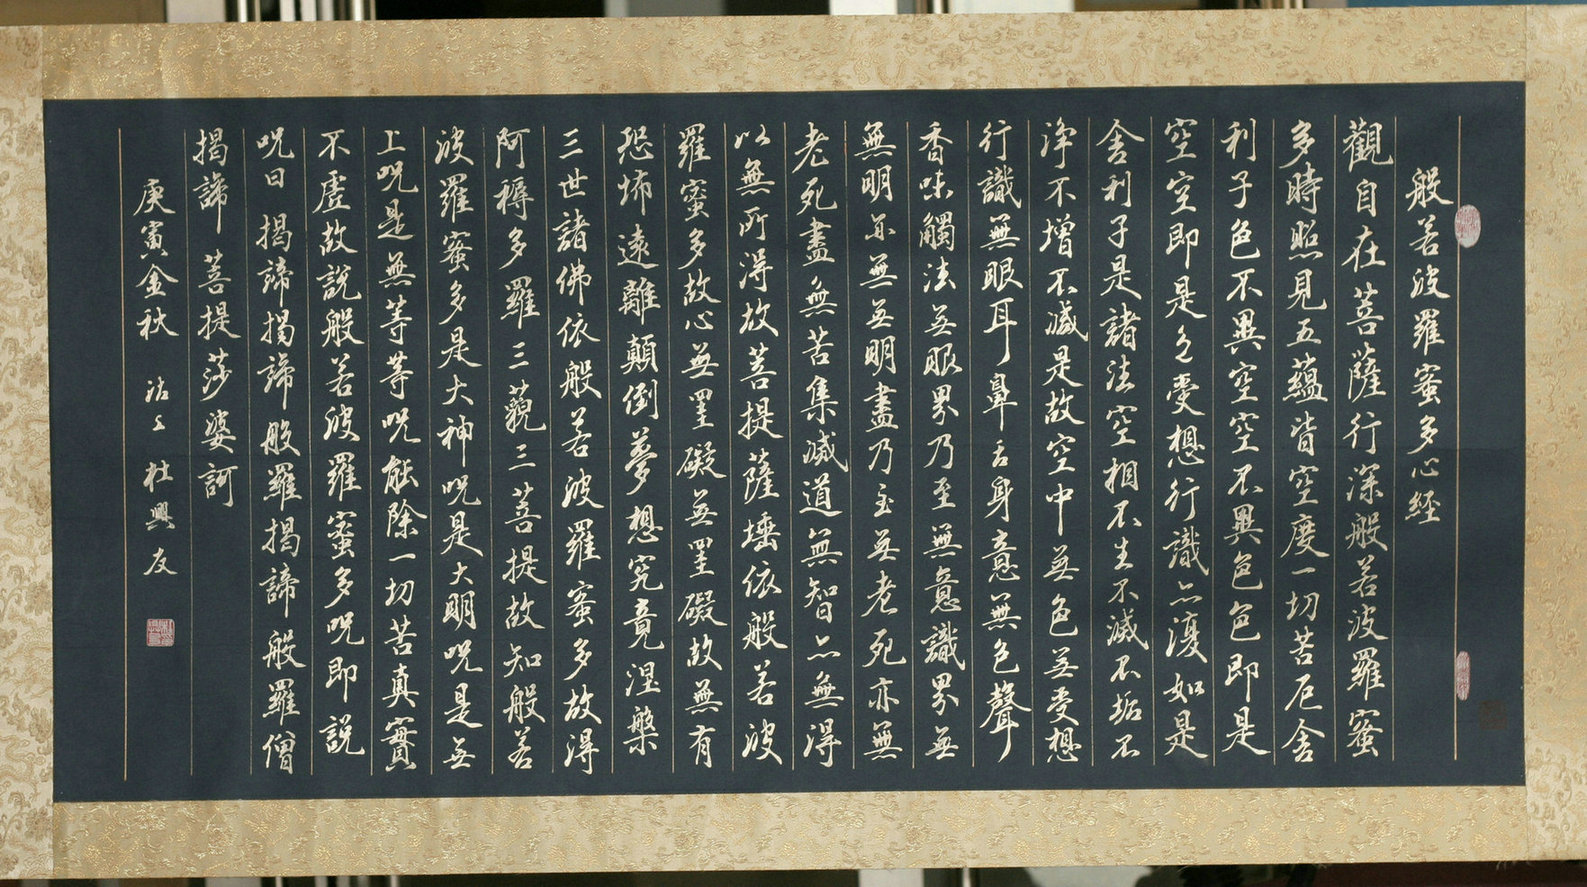 般若波羅蜜多心経
觀自在菩薩行深般若波羅蜜
多時照見五蘊皆空度一切苦厄舍
利子色不異空空不異色色即是
空空即是色受想行識亦復如是
舍利子是諸法空相不生不滅不垢不
淨不增不滅是故空中無色無受想
行識無眼耳鼻舌身意無色聲
香味觸法無眼界乃至無意識界無
無明亦無無明盡乃至無老死亦無
老死盡無苦集滅道無智亦無得
以無所得故菩提薩埵依般若波
羅蜜多故心無罣礙無罣礙故無有
恐怖遠離顛倒夢想究竟涅槃
三世諸佛依般若波羅蜜多故得
阿耨多羅三藐三菩提故知般若
波羅蜜多是大神呪是大明呪是無
上呪是無等等呪能除一切苦真實
不虛故說般若波羅蜜多呪即說
呪曰揭諦揭諦般羅揭諦般羅僧
揭諦菩提莎婆訶
庚寅金秋 沽上杜興友